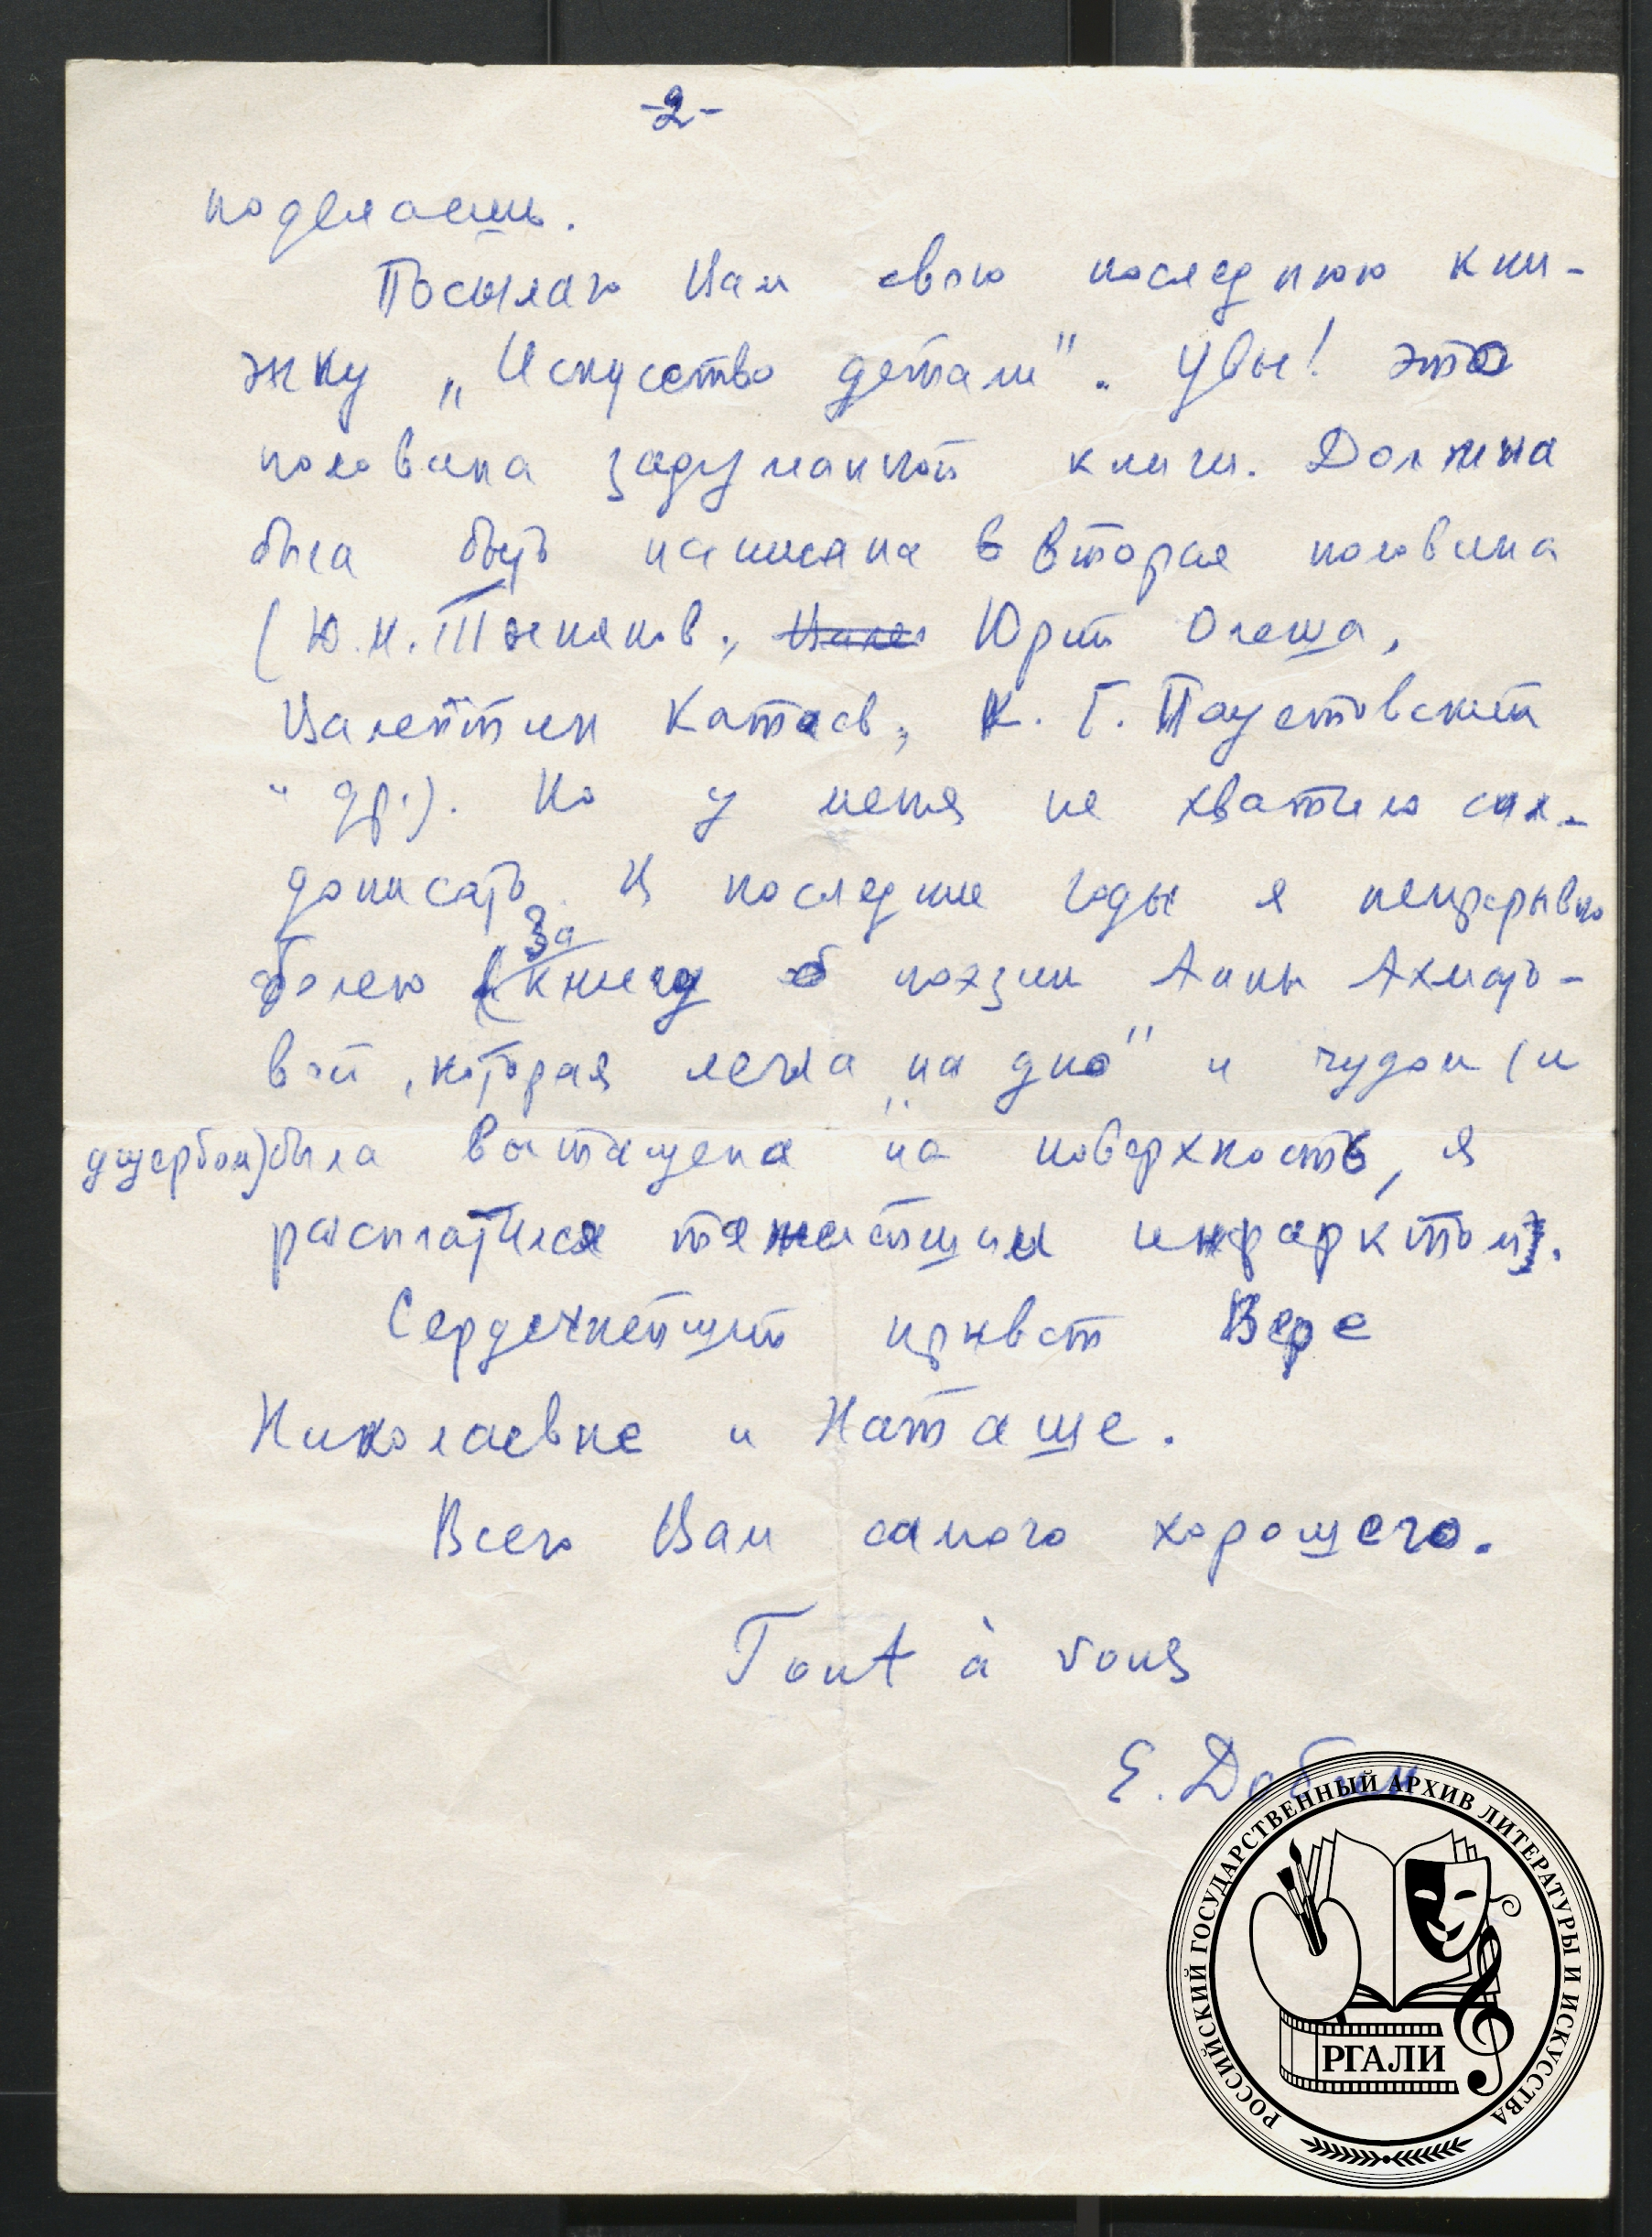 -2-
поделаешь.
Посылаю Вам свою последнюю кни-
жку „Искусство детали". Увы! это
половина задуманной книги. Должна
была быть написана вторая половина
(Ю.Н. Тынянов, Юрий Олеша,
Валентин Катаев, К. Г. Паустовский
и др.). Но у меня не хватило сил
дописать. В последние годы я непрерывно
болею (За книгу о поэзии Анны Ахмато-
вой, которая легла „на дно" и чудом (и
ущербом) была вытащена на поверхность, я
расплатился тяжелейшим инфарктом).
Сердечнейший привет Вере
Николаевне и Наташе.
Всего Вам самого хорошего.
Tout à vous
Е. Добин
РОССИЙСКИЙ ГОСУДАРСТВЕННЫЙ АРХИВ ЛИТЕРАТУРЫ И ИСКУССТВА
РГАЛИ